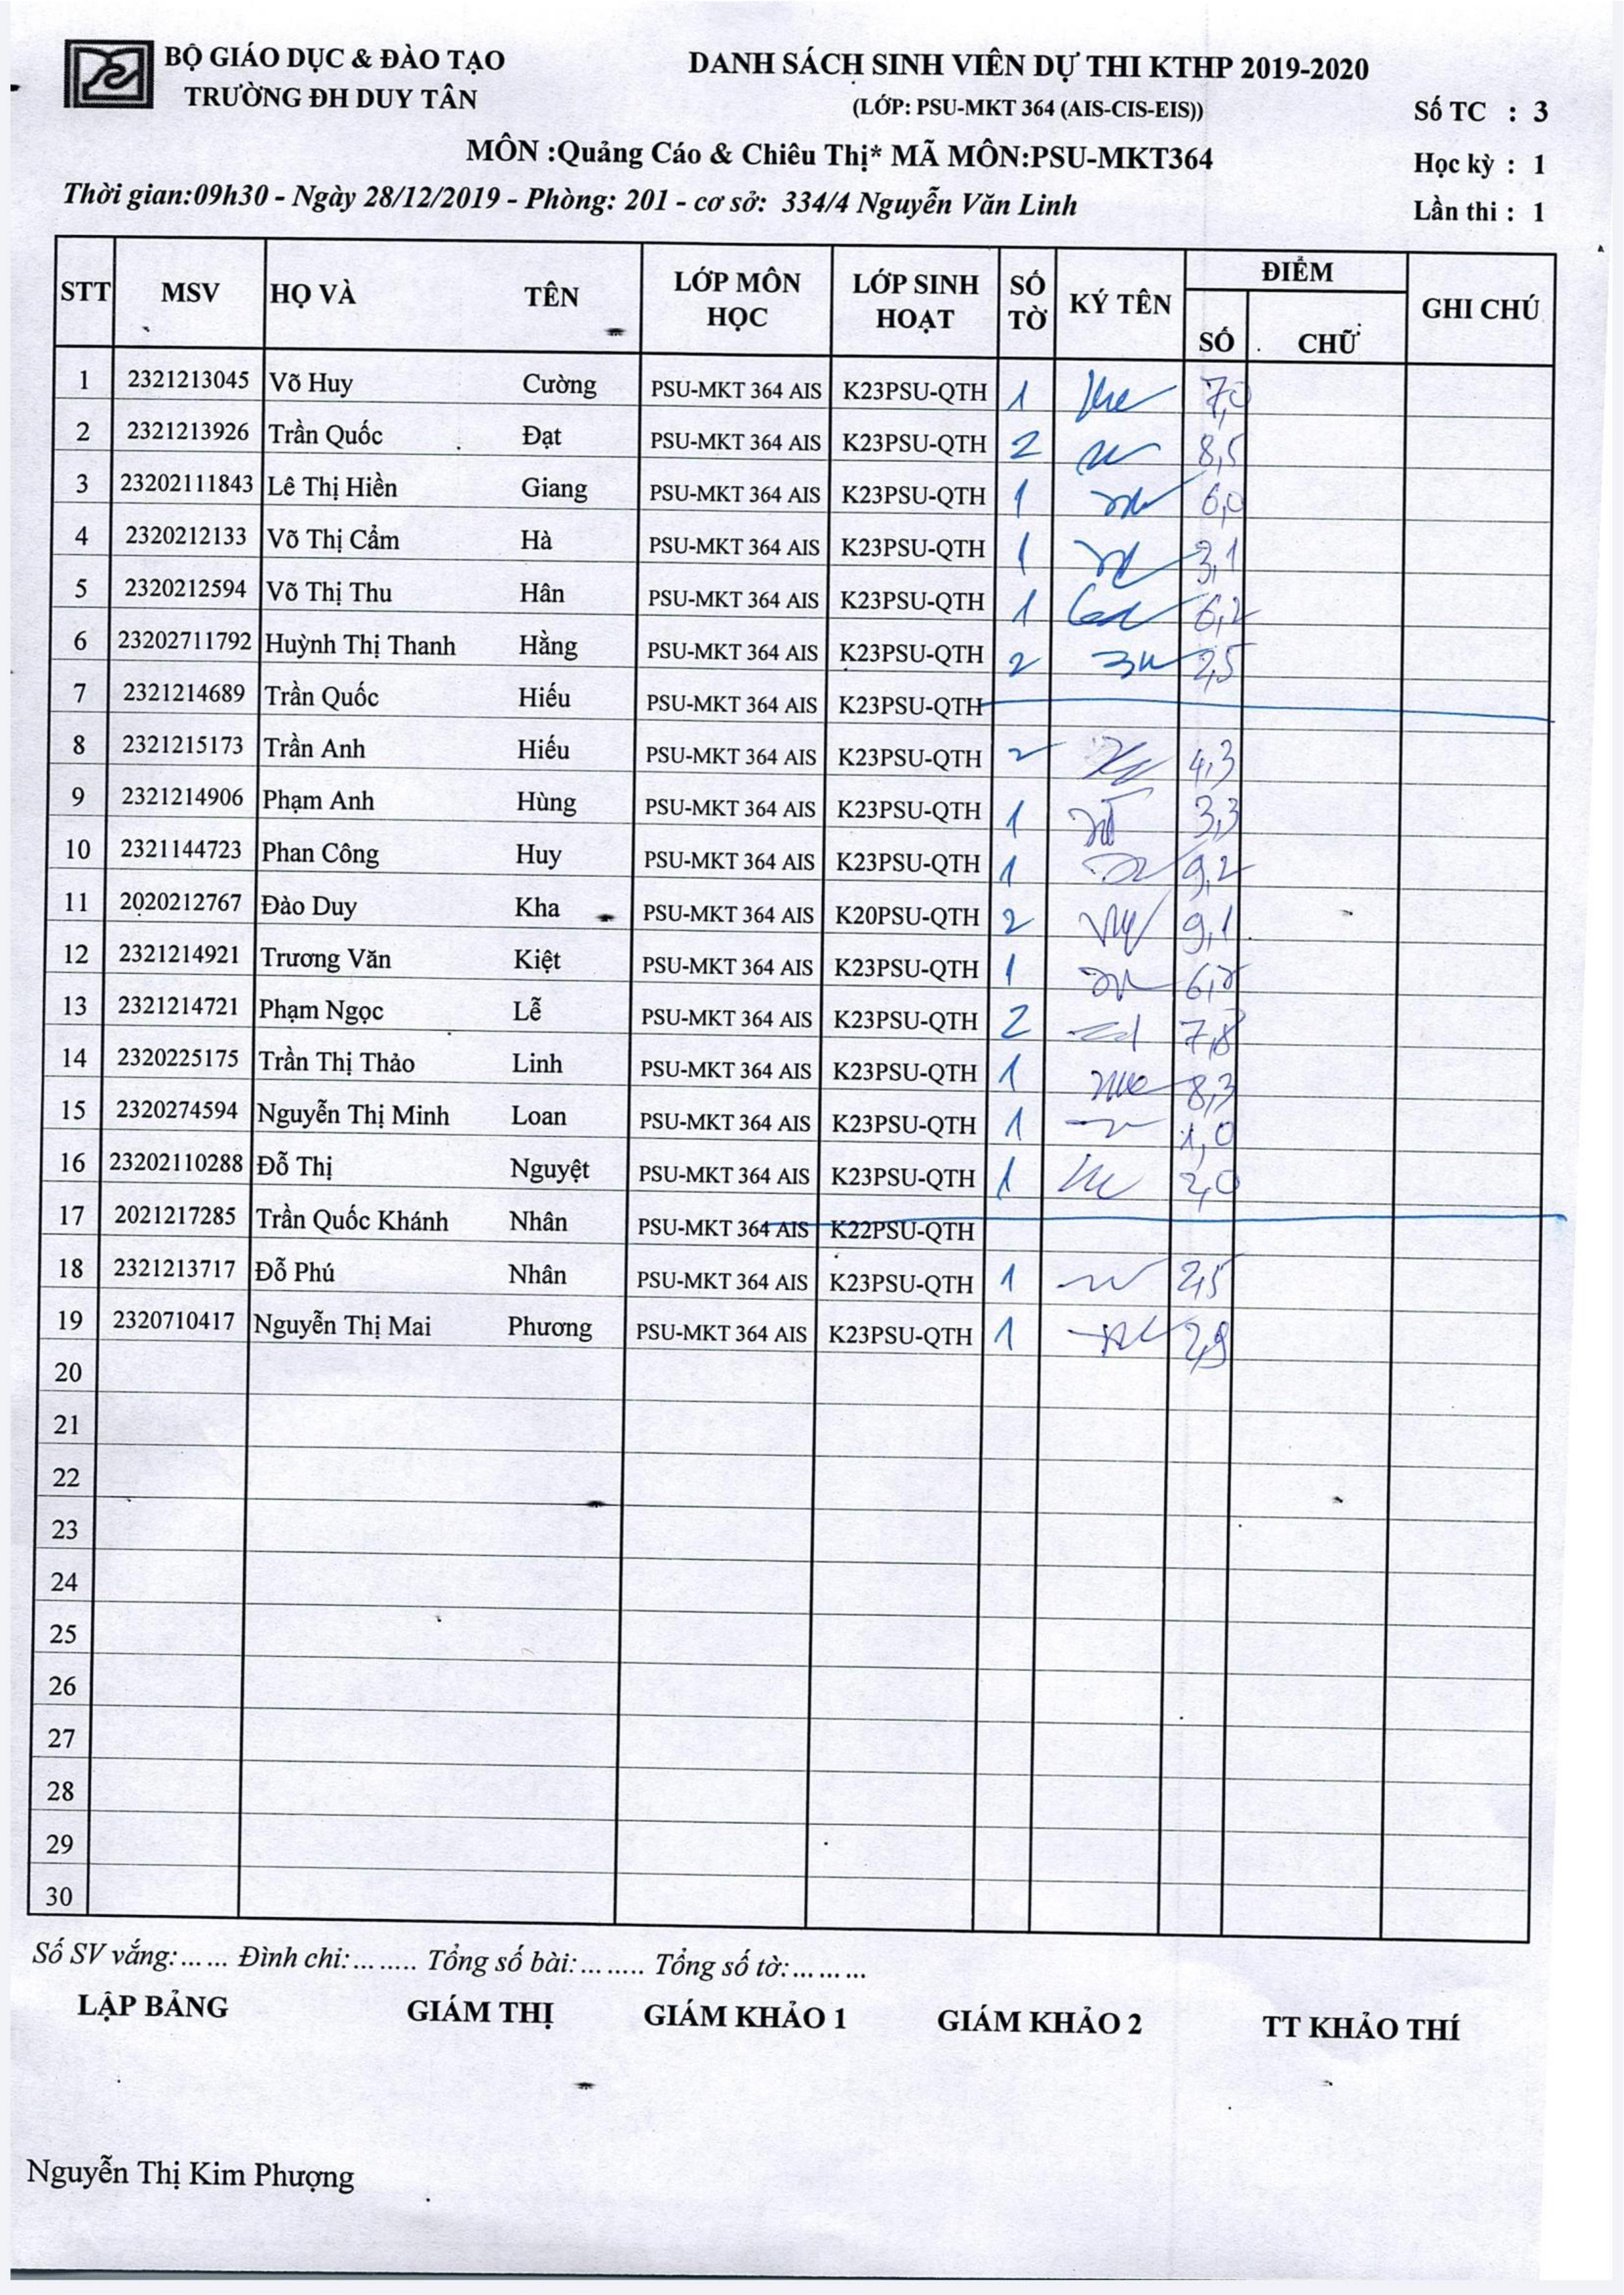 BỘ GIÁO DỤC & ĐÀO TẠO
TRƯỜNG ĐH DUY TÂN
DANH SÁCH SINH VIÊN DỰ THI KTHP 2019-2020
(LỚP: PSU-MKT 364 (AIS-CIS-EIS))
MÔN :Quảng Cáo & Chiêu Thị* MÃ MÔN:PSU-MKT364
Thời gian:09h30 - Ngày 28/12/2019 - Phòng: 201 - cơ sở: 334/4 Nguyễn Văn Linh
Số TC : 3
Học kỳ : 1
Lần thi : 1
STT MSV HỌ VÀ TÊN LỚP MÔN HỌC LỚP SINH HOẠT SỐ TỜ KÝ TÊN ĐIỂM SỐ CHỮ GHI CHÚ
1 2321213045 Võ Huy Cường PSU-MKT 364 AIS K23PSU-QTH 1 7,0
2 2321213926 Trần Quốc Đạt PSU-MKT 364 AIS K23PSU-QTH 2 8,5
3 23202111843 Lê Thị Hiền Giang PSU-MKT 364 AIS K23PSU-QTH 1 6,0
4 2320212133 Võ Thị Cẩm Hà PSU-MKT 364 AIS K23PSU-QTH 1 3,1
5 2320212594 Võ Thị Thu Hân PSU-MKT 364 AIS K23PSU-QTH 1 6,2
6 23202711792 Huỳnh Thị Thanh Hằng PSU-MKT 364 AIS K23PSU-QTH 2 2,5
7 2321214689 Trần Quốc Hiếu PSU-MKT 364 AIS K23PSU-QTH
8 2321215173 Trần Anh Hiếu PSU-MKT 364 AIS K23PSU-QTH 2 4,3
9 2321214906 Phạm Anh Hùng PSU-MKT 364 AIS K23PSU-QTH 1 3,3
10 2321144723 Phan Công Huy PSU-MKT 364 AIS K23PSU-QTH 1 9,2
11 2020212767 Đào Duy Kha PSU-MKT 364 AIS K20PSU-QTH 2 9,1
12 2321214921 Trương Văn Kiệt PSU-MKT 364 AIS K23PSU-QTH 1
13 2321214721 Phạm Ngọc Lễ PSU-MKT 364 AIS K23PSU-QTH 2 7,8
14 2320225175 Trần Thị Thảo Linh PSU-MKT 364 AIS K23PSU-QTH 1 8,3
15 2320274594 Nguyễn Thị Minh Loan PSU-MKT 364 AIS K23PSU-QTH 1 1,0
16 23202110288 Đỗ Thị Nguyệt PSU-MKT 364 AIS K23PSU-QTH 1 2,0
17 2021217285 Trần Quốc Khánh Nhân PSU-MKT 364 AIS K22PSU-QTH
18 2321213717 Đỗ Phú Nhân PSU-MKT 364 AIS K23PSU-QTH 1 2,5
19 2320710417 Nguyễn Thị Mai Phương PSU-MKT 364 AIS K23PSU-QTH 1
20
21
22
23
24
25
26
27
28
29
30
Số SV vắng:...... Đình chỉ:........ Tổng số bài:........ Tổng số tờ:.........
LẬP BẢNG GIÁM THỊ GIÁM KHẢO 1 GIÁM KHẢO 2 TT KHẢO THÍ
Nguyễn Thị Kim Phượng